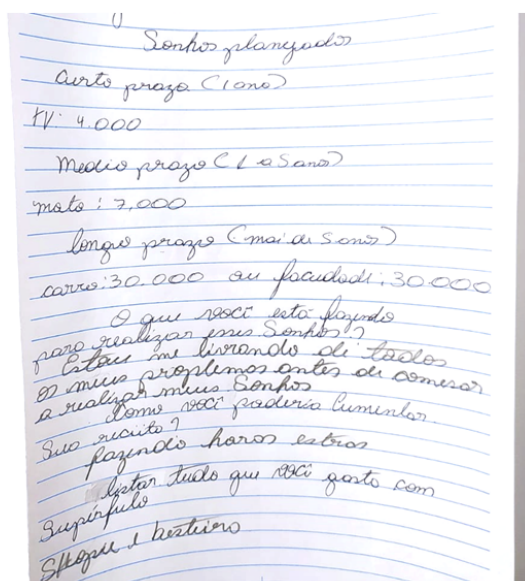 Sonhos planejados
Curto prazo (1 ano)
tv: 4.000
Medio prazo (1 a 5 anos)
moto: 7,000
longo prazo (mai de 5 anos)
carro: 30.000 ou facudade: 30.000
O que você está fazendo
para realizar esses Sonhos?
Estou me livrando de todos
os meus proplemos antes de comesar
a realizar meus Sonhos
Como você poderia Cumentar
Sua receita?
fazendo horas extras
listar tudo que você gasta com
Supérfulo
Shopee e besteira